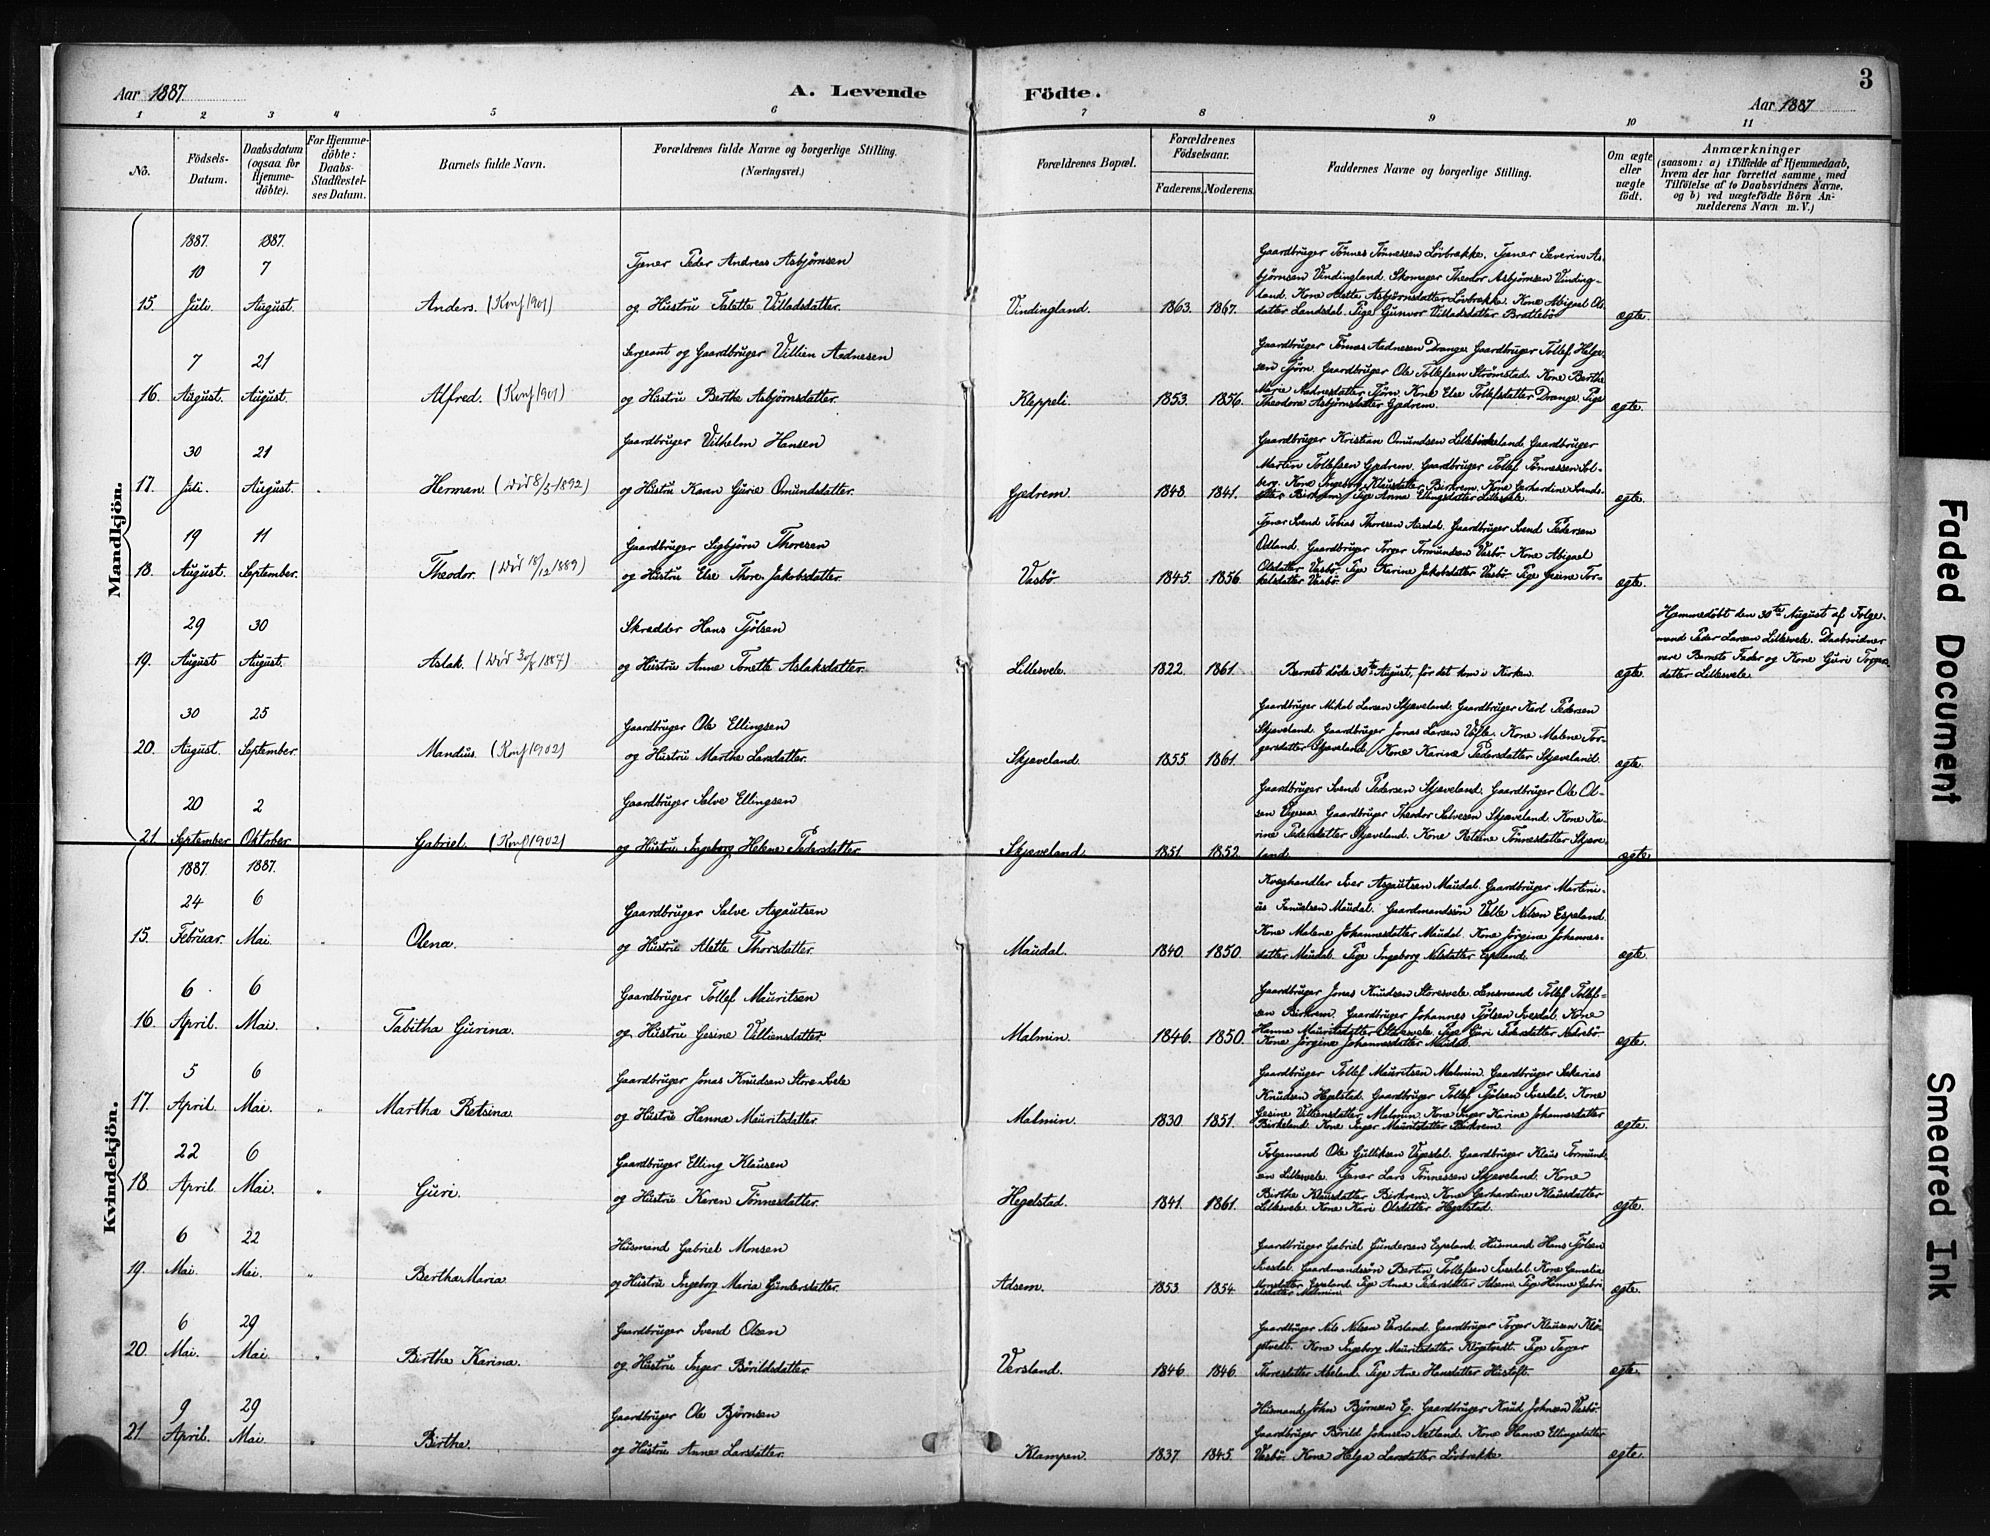 Aar 1887.
A. Levende Födte.
3
Aar 1887
1 2 3 4 5 6 7 8 9 10 11
No.
Födsels-Datum.
Daabsdatum (ogsaa for Hjemmedöbte).
For Hjemmedöbte: Daabs-Stadfæstelses Datum.
Barnets fulde Navn.
Forældrenes fulde Navne og borgerlige Stilling. (Næringsvei.)
Forældrenes Bopæl.
Forældrenes Födselsaar.
Faderens. Moderens.
Faddernes Navne og borgerlige Stilling.
Om ægte eller uægte födt.
Anmærkninger
(saasom: a) i Tilfælde af Hjemmedaab, hvem der har forrettet samme, med Tilföielse af to Daabsvidners Navne, og b) ved uægtefödte Börn Anmelderens Navn m.V.)
Mandkjön.
1887. 1887.
15. 10 Juli. 7 August. Anders. (Konf 1901)
Tjener Peder Andreas Asbjørnsen
og Hustru Talette Villadsdatter.
Vindingland. 1863. 1867.
Gaardbruger Tønnes Tønnessen Løvbrække. Tjener Severin Asbjørnsen Vindingland. Skomager Theodor Asbjørnsen Vindingland. Kone Alette Asbjørnsdatter Løvbrække. Kone Abigael Olsdatter Landsdal. Pige Gunvor Villadsdatter Brattebø
ægte.
16. 7 August. 21 August. Alfred. (Konf 1901)
Sergeant og Gaardbruger Villien Aadnesen
og Hustru Berthe Asbjørnsdatter.
Kleppeli. 1853. 1856.
Gaardbruger Tønnes Aadnesen Drange. Gaardbruger Tollef Helgesen Tjørn. Gaardbruger Ole Tollefsen Strømstad. Kone Berthe Marie Aadnesdatter Tjørn. Kone Else Tollefsdatter Drange. Pige Theodora Asbjørnsdatter Gjedrem.
ægte.
17. 30 Juli. 21 August. Herman. (Død 8/5 1892)
Gaardbruger Vilhelm Hansen
og Hustru Karen Gurie Omundsdatter.
Gjedrem. 1848. 1841.
Gaardbruger Kristian Omundsen Lillebirkeland. Gaardbruger Martin Tollefsen Gjedrem. Gaardbruger Tollef Tønnessen Solberg. Kone Ingeborg Klausdatter Birkrem. Kone Gerhardine Svendsdatter Birkrem. Pige Anna Ellingsdatter Lillesvele.
ægte.
18. 19 August. 11 September. Theodor. (Død 18/12 1889)
Gaardbruger Sigbjørn Thoresen
og Hustru Else Thore Jakobsdatter.
Vasbø 1845 1856
Tjener Svend Tobias Thoresen Aasdal. Gaardbruger Svend Pedersen Odland. Gaardbruger Torger Tormundsen Vasbø. Kone Abigael Olsdatter Vasbø. Pige Karine Jakobsdatter Vasbø. Pige Gesine Torkelsdatter Vasbø.
ægte.
19. 29 August 30 August. Aslak. (Død 30/8 1887)
Skrædder Hans Tjølsen
og Hustru Anne Tonette Aslaksdatter.
Lillesvele. 1822. 1861.
Barnet døde 30te August, før det kom i Kirken.
ægte.
Hjemmedøbt den 30te August af Følgemand Peder Larsen Lillesvele. Daabsvidner vare Barnets Fader og Kone Guri Torgersdatter Lillesvele.
20. 30 August. 25 September. Mandus. (Konf 1902)
Gaardbruger Ole Ellingsen
og Hustru Marthe Larsdatter.
Skjæveland. 1855. 1861.
Gaardbruger Mikal Larsen Skjæveland. Gaardbruger Karl Pedersen Skjæveland. Gaardbruger Jonas Larsen Valle. Kone Malene Torgersdatter Skjæveland. Kone Karine Pedersdatter Skjæveland.
ægte.
21 20 September 2 Oktober. Gabriel. (Konf 1902)
Gaardbruger Salve Ellingsen
og Hustru Ingeborg Helene Pedersdatter.
Skjæveland. 1851. 1852.
Gaardbruger Svend Pedersen Skjæveland. Gaardbruger Ole Olsen Egesaa. Gaardbruger Theodor Salvesen Skjæveland. Kone Karine Pedersdatter Skjæveland. Kone Retsine Tønnesdatter Skjæveland
ægte.
Kvindekjön.
1887. 1887.
15. 24 Februar. 6 Mai. " Olena.
Gaardbruger Salve Asgautsen
og Hustru Alette Thorsdatter.
Maudal. 1840. 1850.
Kvæghandler Iver Asgautsen Maudal. Gaardbruger Martinius Knudsen Maudal. Gaardmandssøn Valle Nilsen Espeland. Kone Malene Johannesdatter Maudal. Kone Jørgine Johannesdatter Maudal. Pige Ingeborg Nilsdatter Espeland.
ægte.
16. 6 April. 6 Mai. " Tabitha Gurina.
Gaardbruger Tollef Mauritsen
og Hustru Gesine Villiensdatter.
Malmin. 1846. 1850.
Gaardbruger Jonas Knudsen Storesvele. Lensmand Tollef Tollefsen Birkrem. Gaardbruger Johannes Tjølsen Ivesdal. Kone Hanna Mauritsdatter Storesvele. Pige Guri Pedersdatter Netrebø. Kone Jørgine Johannesdatter Maudal.
ægte.
17. 5 April. 6 Mai. " Martha Retsina.
Gaardbruger Jonas Knudsen Store-Svele
og Hustru Hanna Mauritsdatter.
Malmin. 1830 1851.
Gaardbruger Tollef Mauritsen Malmin. Gaardbruger Sakarias Knudsen Hegelstad. Gaardbruger Tollef Tjølsen Ivesdal. Kone Gesine Villiensdatter Malmin. Kone Inger Karine Johannesdatter Birkeland. Kone Inger Mauritsdatter Birkrem.
ægte.
18. 22 April. 6 Mai. " Guri.
Gaardbruger Elling Klausen
og Hustru Karen Tønnesdatter.
Hegelstad. 1841. 1861.
Følgemand Ole Gulliksen Vegesdal. Gaardbruger Klaus Tormundsen Lillesvele. Tjener Lars Tønnessen Skjæveland. Kone Birthe Klausdatter Birkrem. Kone Gerhardine Klausdatter Lillesvele. Kone Kari Olsdatter Hegelstad.
ægte.
19. 6 Mai. 22 Mai. " Bertha Maria.
Husmand Gabriel Monsen
og Hustru Ingeborg Maria Gundersdatter.
Adsem. 1853 1854
Gaardbruger Gabriel Gundersen Espeland. Husmand Hans Tjølsen Ivesdal. Gaardmandssøn Bertin Tollefsen Ivesdal. Kone Gemalia Monsdatter Espeland. Pige Anna Pedersdatter Adsem. Pige Hanne Gabrielsdatter Malmin.
ægte.
20. 6 Mai. 29 Mai. " Birthe Karina.
Gaardbruger Svend Olsen
og Hustru Inger Børildsdatter.
Versland. 1846 1846.
Gaardbruger Nils Nilsen Versland. Gaardbruger Torger Klausen Kløgetvedt. Kone Ingeborg Mauritsdatter Kløgetvedt. Pige Torger Thoresdatter Abeland. Pige Ane Hansdatter Hustoft.
ægte.
21. 9 April. 29 Mai. " Birthe.
Gaardbruger Ole Bjørnsen
og Hustru Anne Larsdatter.
Klampen. 1837. 1845.
Husmand John Bjørnsen Eg. Gaardbruger Knud Johnsen Vasbø. Gaardbruger Børild Johnsen Netland. Kone Hanne Ellingsdatter Vasbø. Kone Helga Larsdatter Løvbrække.
ægte.
Faded Document
Smeared Ink